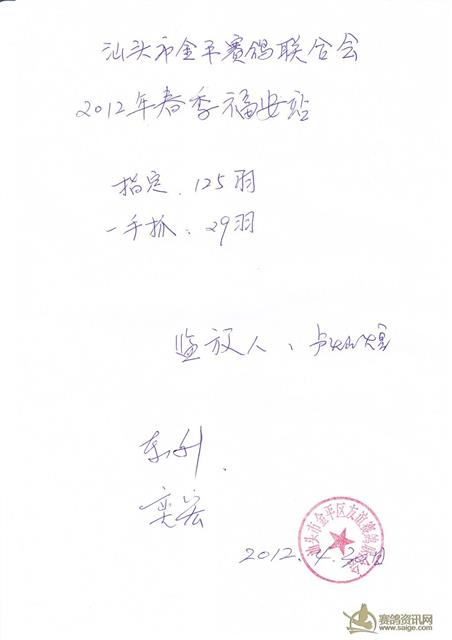 汕头市金平赛鸽联合会
2012年春季福安站
指定. 125羽
一手抓. 29羽
监放人、卢
东升.
奕宏
汕头市金平区友谊赛鸽俱
2012.4.2 日
赛鸽资讯网
www.saige.com